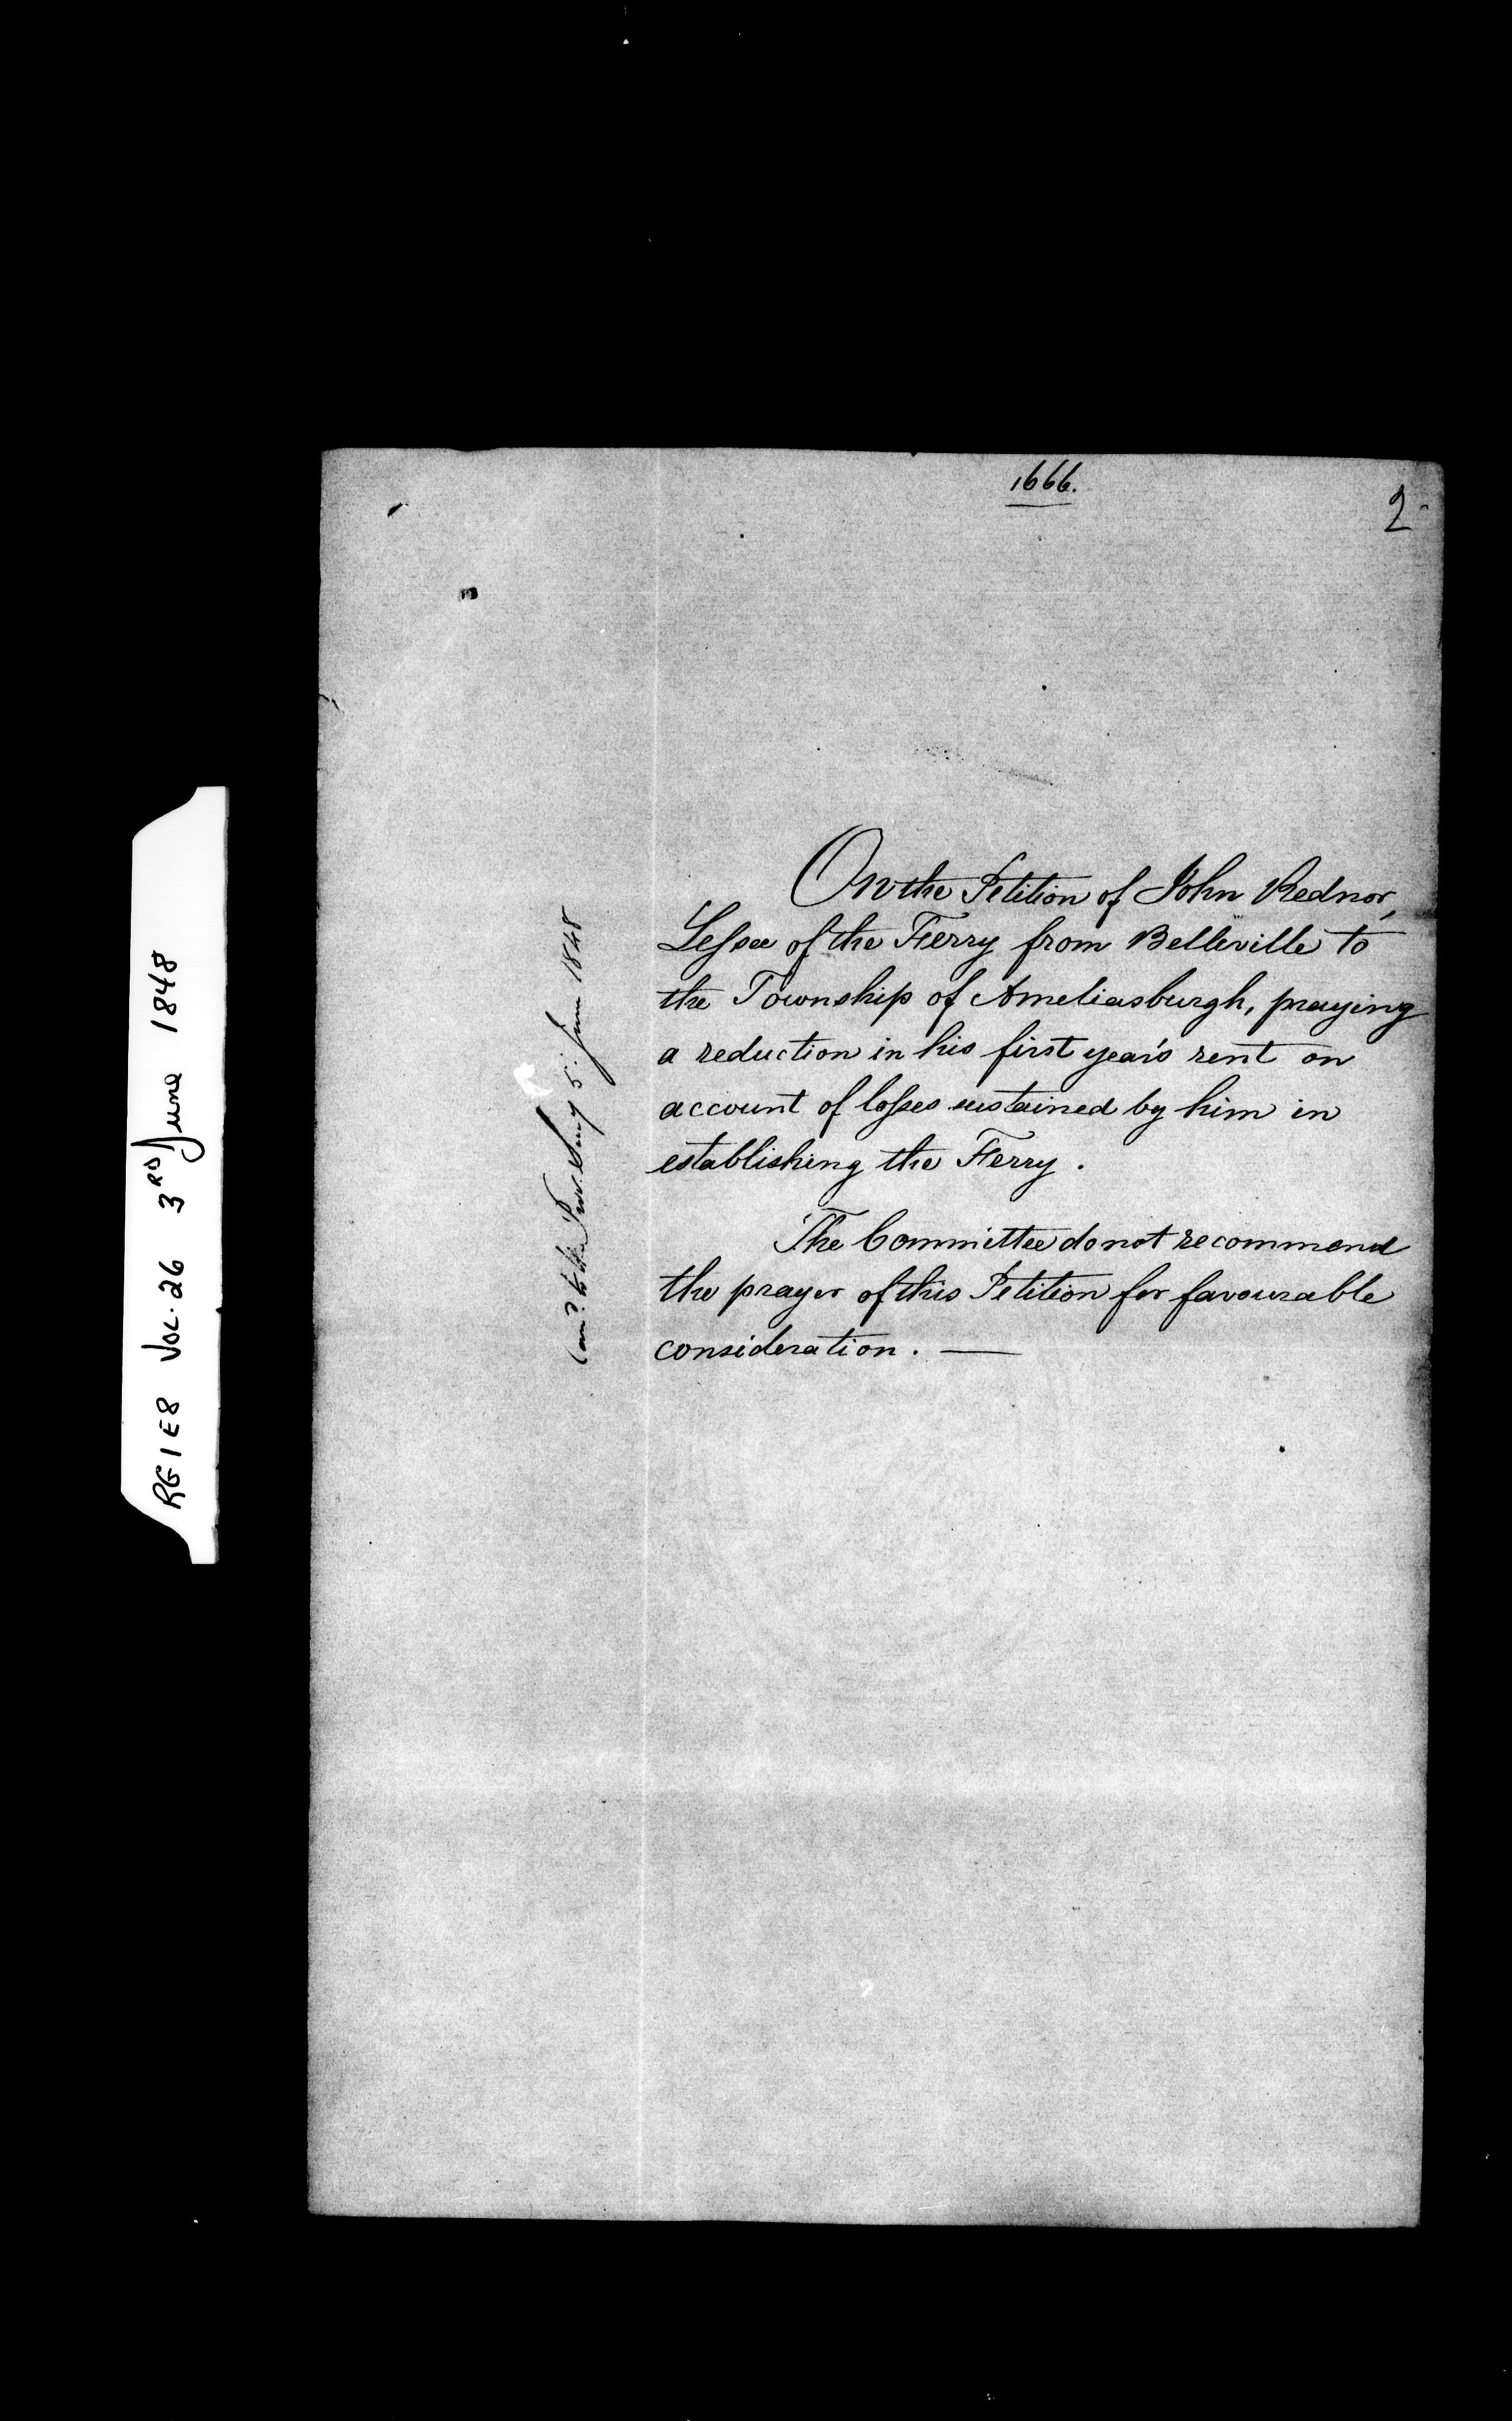 1666.
2
RG1E8 VOL. 26 3RD June 1848
Comd. to the Prov. Secy 5. June 1848
On the Petition of John Rednor,
Lessee of the Ferry from Belleville to
the Township of Ameliasburgh, praying
a reduction in his first year's rent on
account of losses sustained by him in
establishing the Ferry.
The Committee do not recommend
the prayer of this Petition for favourable
consideration. —